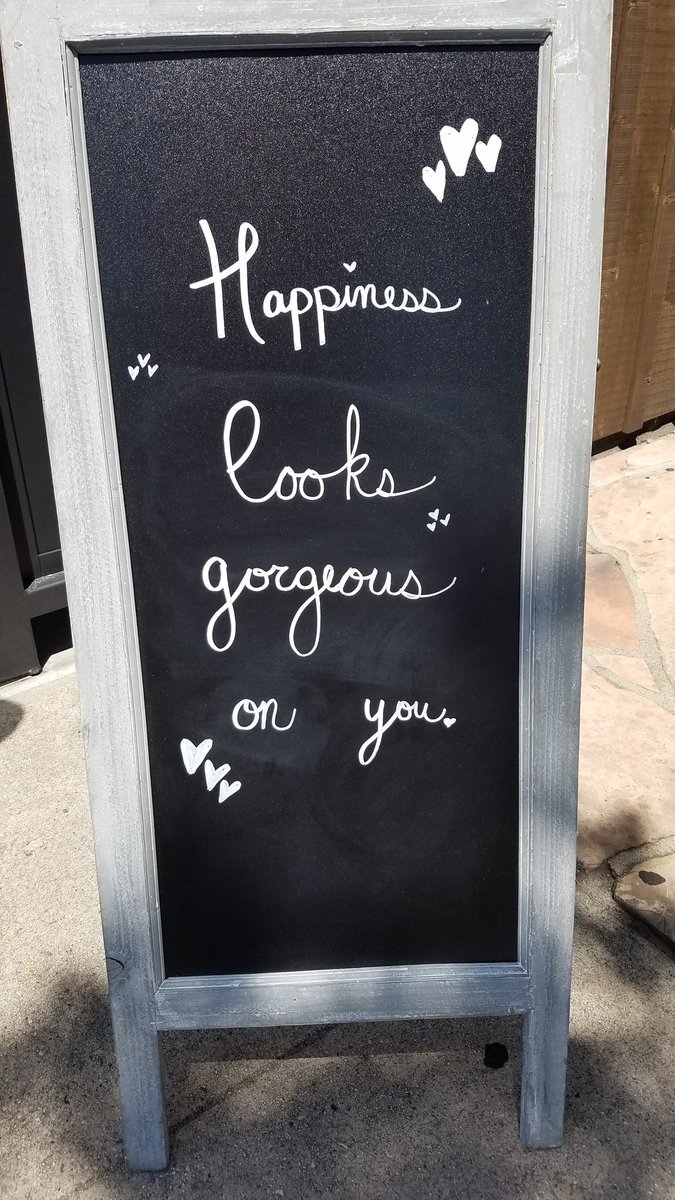 Happiness
looks
gorgeous
on you.